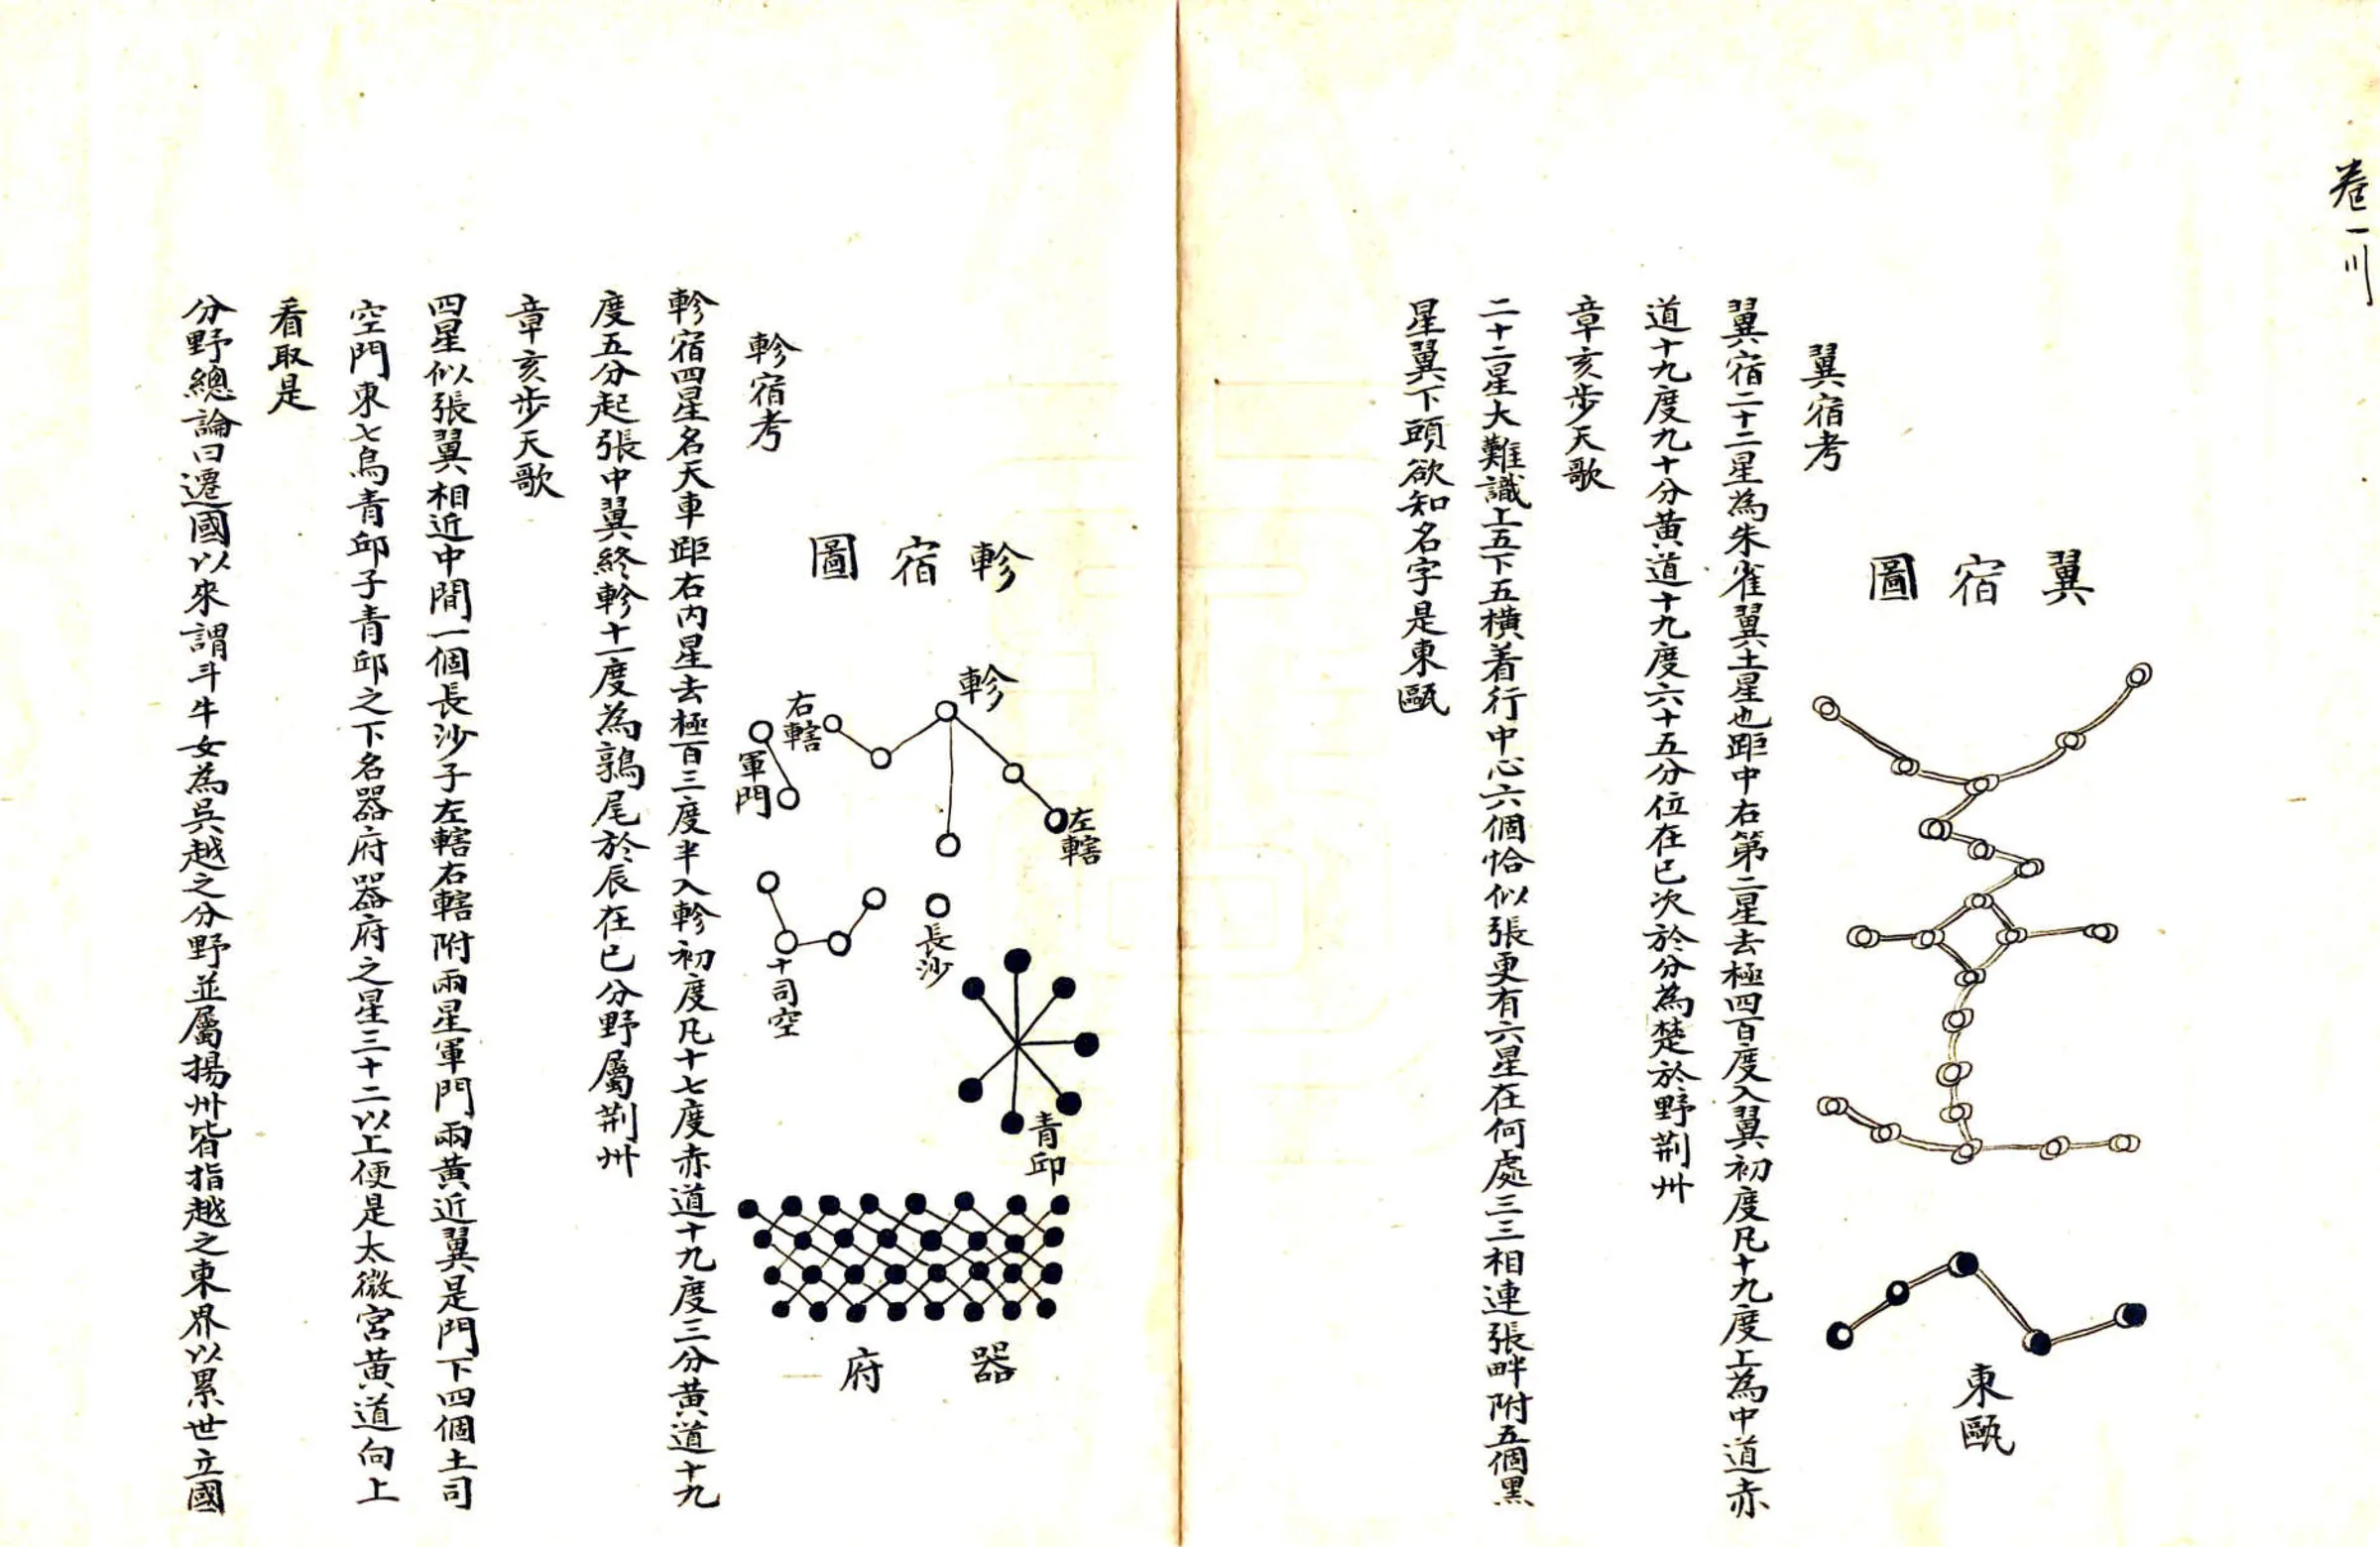 卷一
翼宿圖
東甌
翼宿考
翼宿二十二星為朱雀翼土星也距中右第二星去極四百度入翼初度凡十九度上為中道赤
道十九度九十分黃道十九度六十五分位在巳次於分為楚於野荆州
章亥步天歌
二十二星大難識上五下五橫着行中心六個恰似張更有六星在何處三三相連張畔附五個黑
星翼下頭欲知名字是東甌
軫宿圖
軫
右轄
軍門
左轄
長沙
土司空
青邱
器府
軫宿考
軫宿四星名天車距右内星去極百三度半入軫初度凡十七度赤道十九度三分黃道十九
度五分起張中翼終軫十一度為鶉尾於辰在巳分野屬荆州
章亥步天歌
四星似張翼相近中間一個長沙子左轄右轄附兩星軍門兩黃近翼是門下四個土司
空門東七烏青邱子青邱之下名器府器府之星三十二以上便是太微宮黃道向上
看取是
分野總論曰遷國以來謂斗牛女為吳越之分野並屬揚州皆指越之東界以累世立國